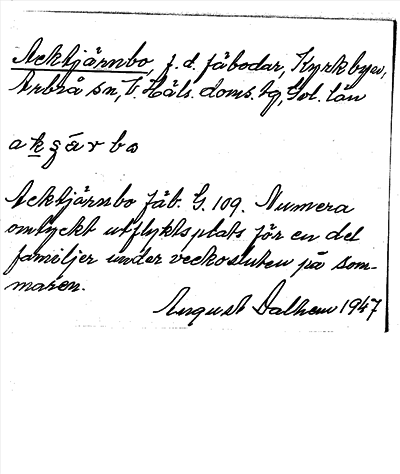 Acktjärnbo, f. d. fäbodar, Kyrkbyn,
Arbrå sn, V. Häls. doms. bg, Gvl. län
a k ʂ ä r b ω
Acktjärnbo fäb. G. 109. Numera
omtyckt utflyktsplats för en del
familjer under veckosluten på som-
maren.
August Dalhem 1947